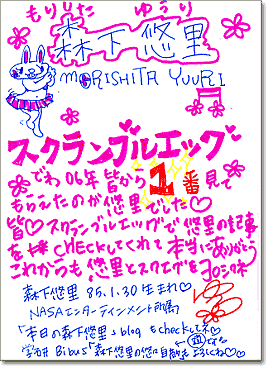 もりした ゆうり
森下悠里
MORISHITA YUURI
スクランブルエッグ
でわ 06年 皆から 1番 見て
もらえたのが 悠里でした♡
皆♡スクランブルエッグで 悠里の記事
を CHECKしてくれて 本当に ありがとう
これからも 悠里とスクエグを ヨロシク
森下悠里 85.1.30 生まれ♡
NASAエンターテインメント所属
「本日の森下悠里」blog も checkしてネ♡
学研 Bibus「森下悠里の悠里自慰」